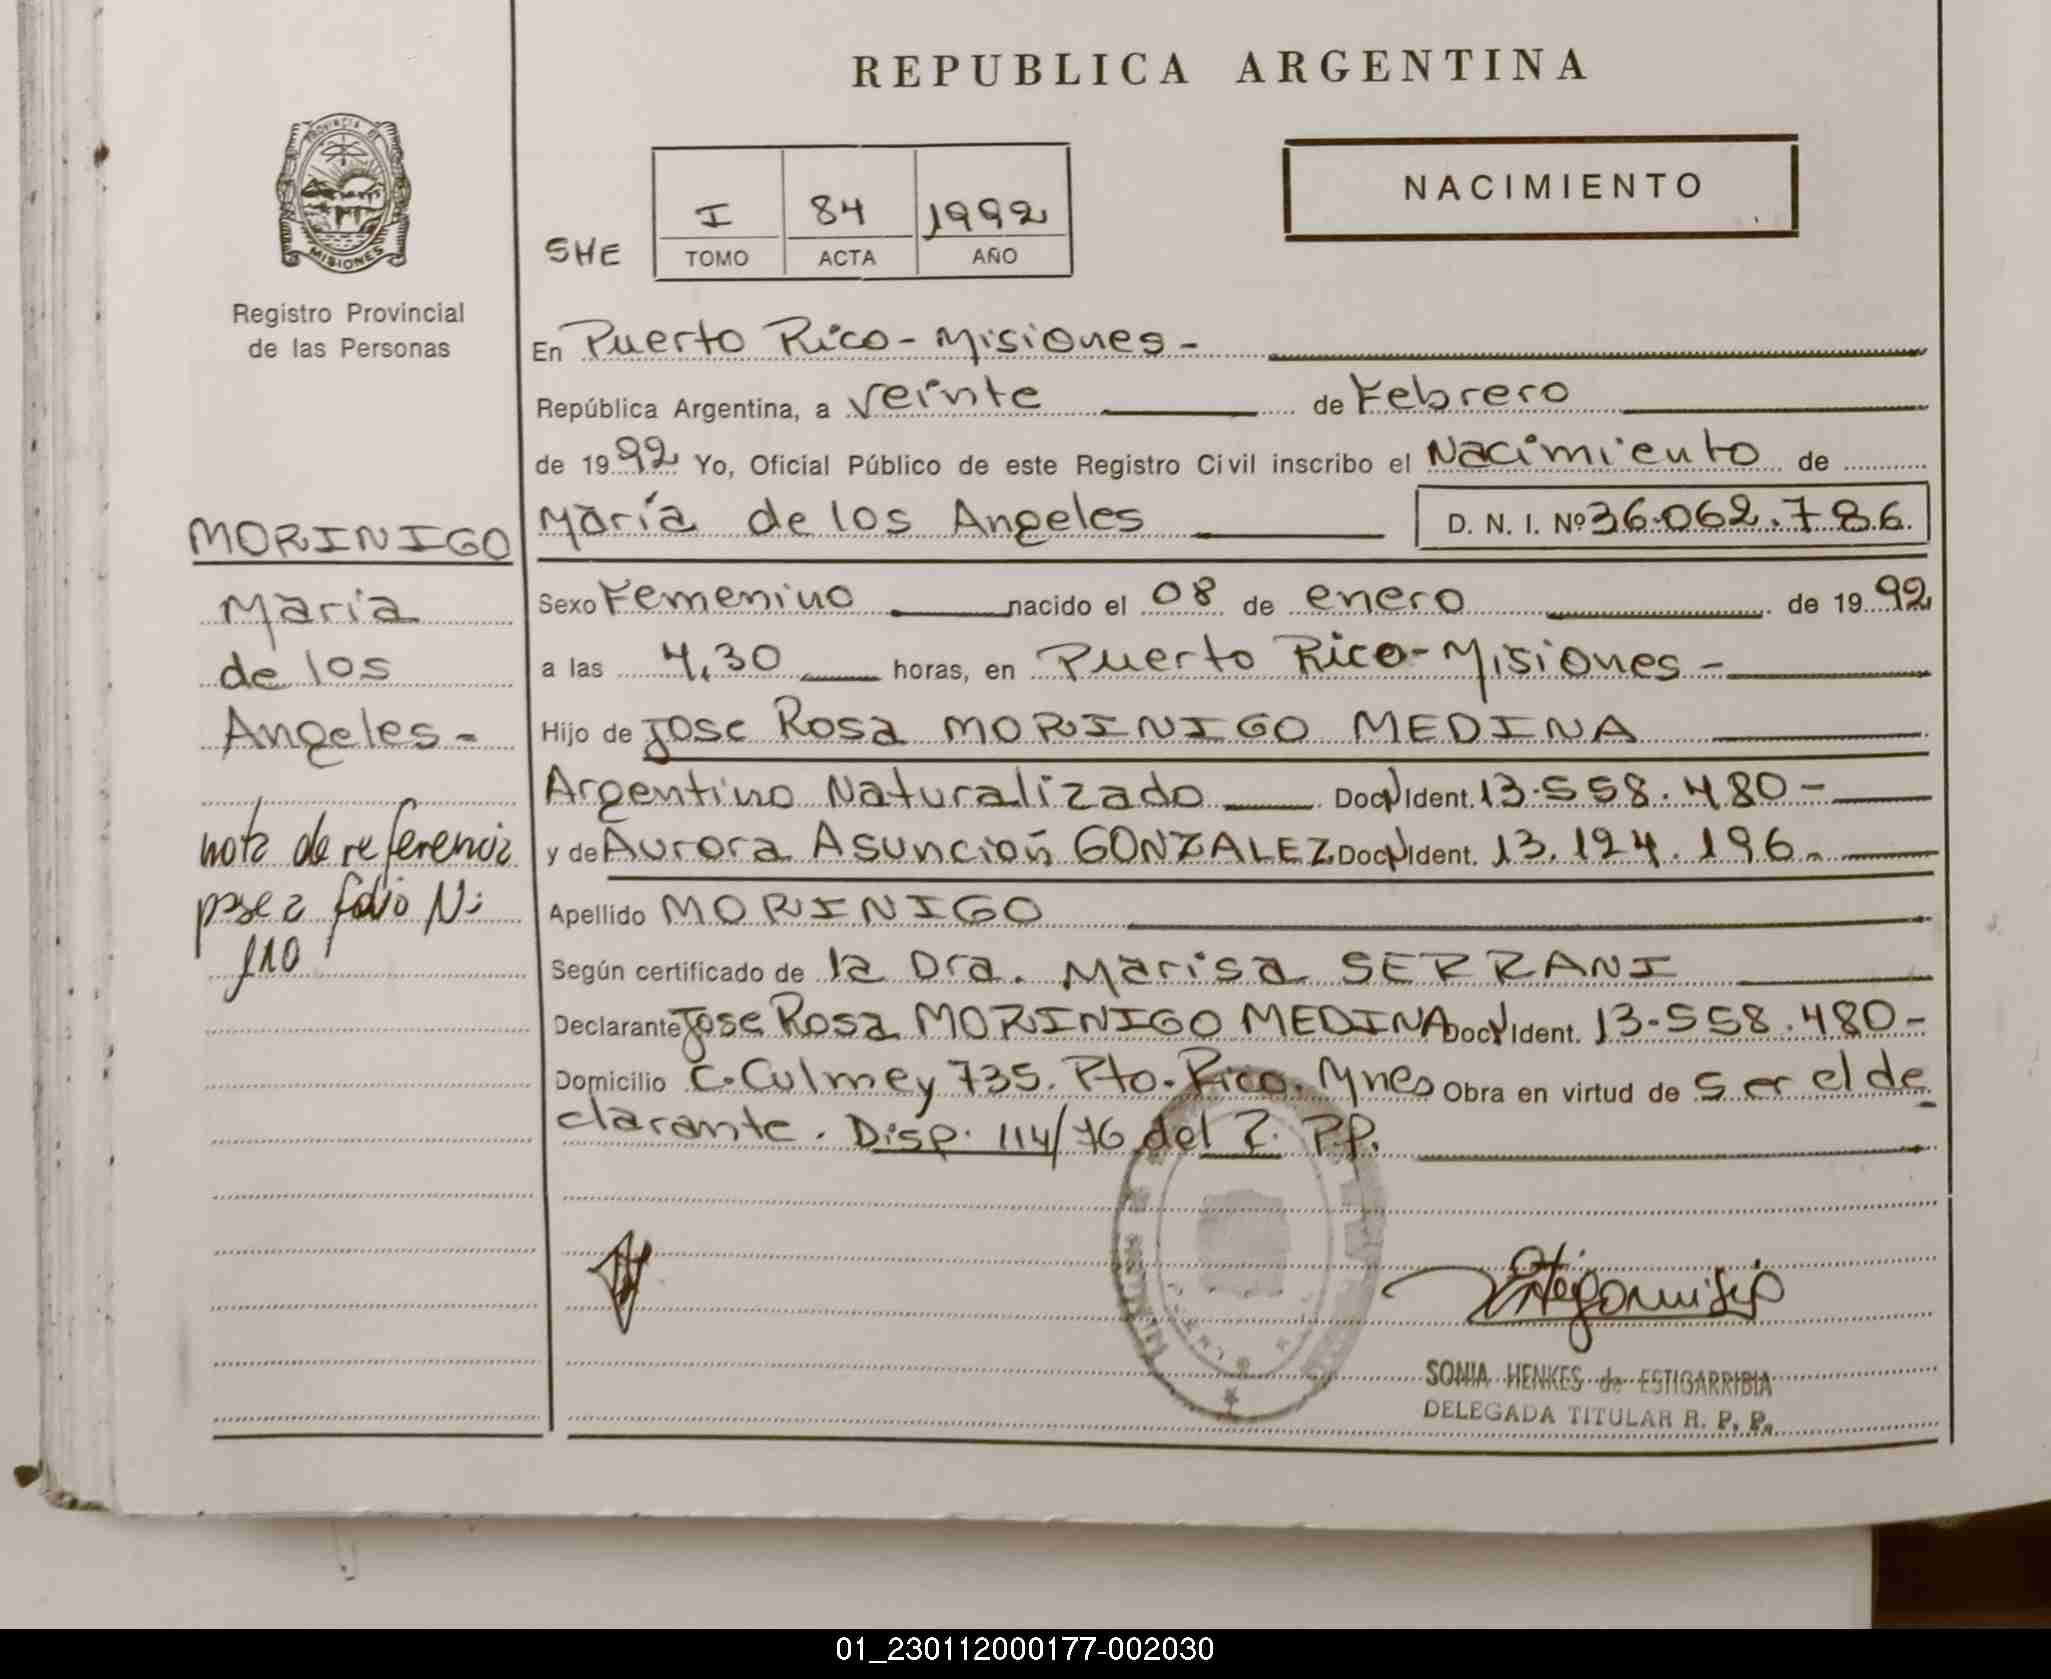 REPUBLICA ARGENTINA
PROVINCIA DE
MISIONES
Registro Provincial
de las Personas
NACIMIENTO
SHE
I 84 1992
TOMO ACTA AÑO
En Puerto Rico - Misiones -
República Argentina, a veinte de Febrero
de 1992 Yo, Oficial Público de este Registro Civil inscribo el Nacimiento de
María de los Angeles D. N. I. Nº 36.062.786.
Sexo Femenino nacido el 08 de enero de 1992
a las 4,30 horas, en Puerto Rico - Misiones -
Hijo de Jose Rosa MORINIGO MEDINA
Argentino Naturalizado Doc. Ident. 13.558.480 -
y de Aurora Asunción GONZALEZ Doc. Ident. 13.124.196.-
Apellido MORINIGO
Según certificado de la Dra. Marisa SERRANI
Declarante Jose Rosa MORINIGO MEDINA Doc. Ident. 13.558.480 -
Domicilio C. Culmey 735. Pto. Rico. Mnes Obra en virtud de ser el de
clarante. Disp. 114/76 del R.P.P.
MORINIGO
Maria
de los
Angeles -
nota de referencia
pase a folio Nº
110
SONIA HENKES de ESTIGARRIBIA
DELEGADA TITULAR R. P. P.
01_230112000177-002030